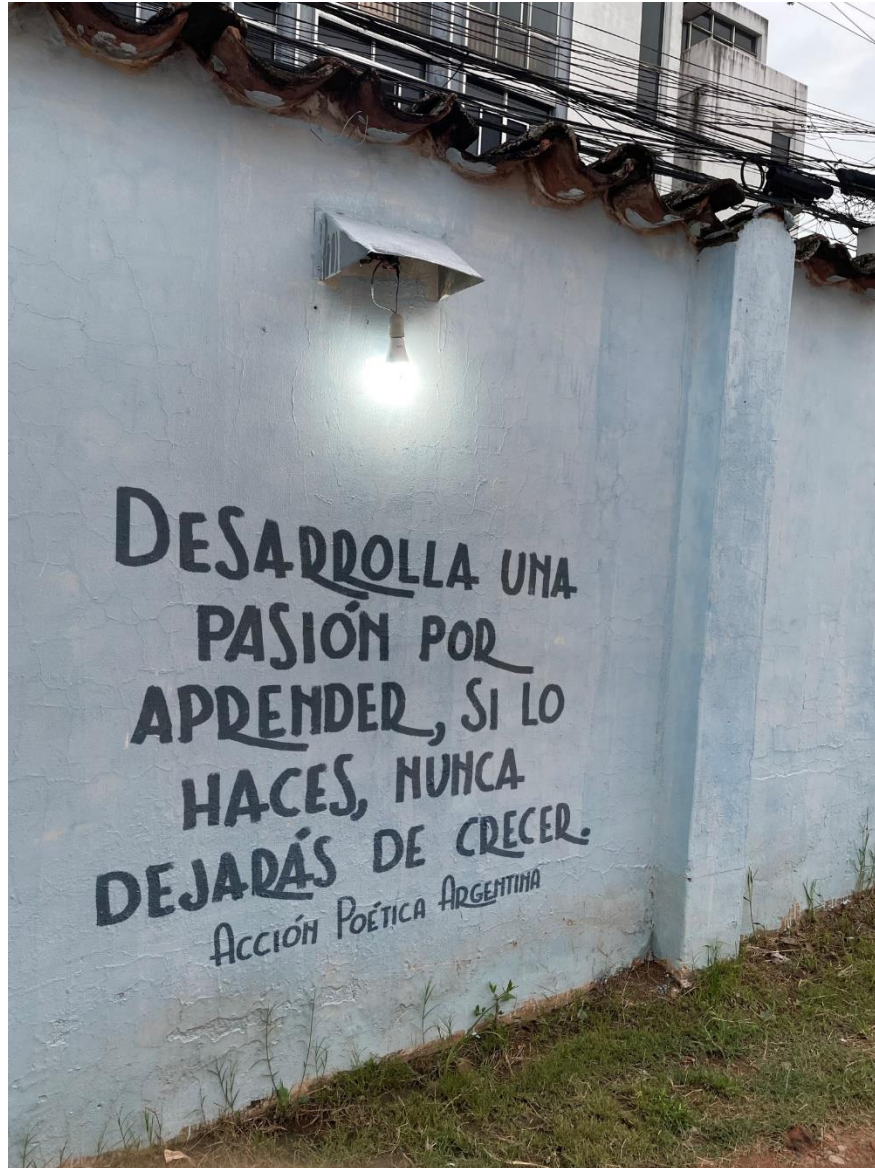 DESARROLLA UNA
PASIÓN POR
APRENDER, SI LO
HACES, NUNCA
DEJARÁS DE CRECER.
ACCIÓN POÉTICA ARGENTINA